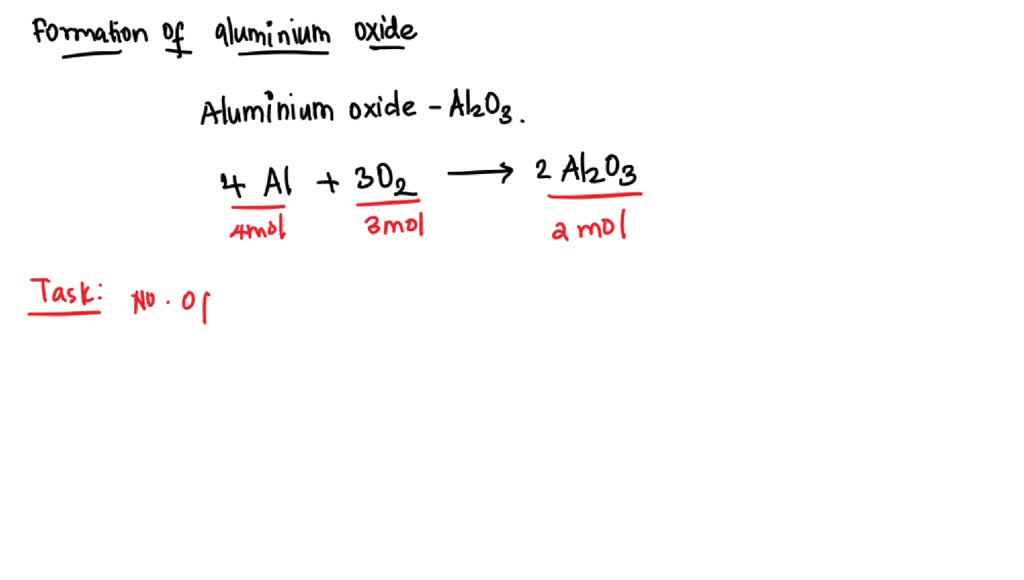 Formation of aluminium oxide
Aluminium oxide - Al2O3.
4 Al + 3O2 → 2 Al2O3
4mol 3mol 2 mol
Task: No. of